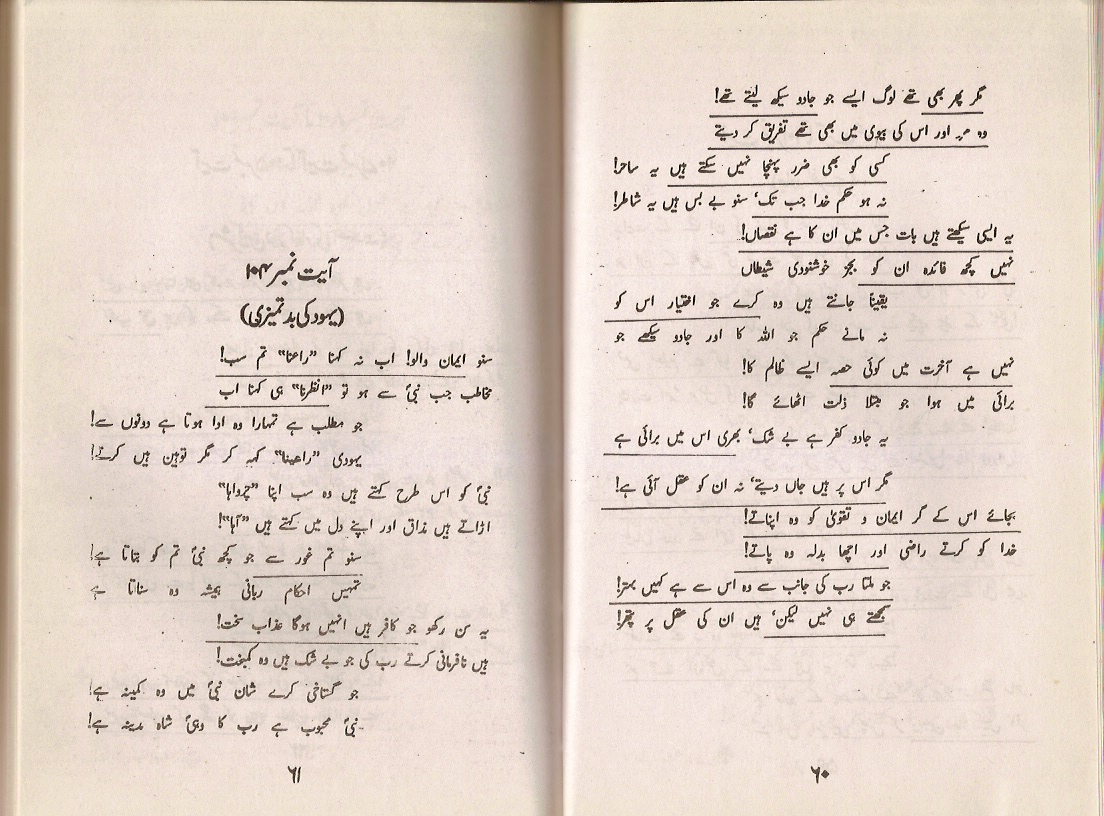 مگر پھر بھی تھے لوگ ایسے جو جادو سیکھ لیتے تھے!
وہ مرد اور اس کی بیوی میں بھی تھے تفریق کر دیتے
کسی کو بھی ضرر پہنچا نہیں سکتے ہیں یہ ساحر!
نہ ہو حکم خدا جب تک، سنو بے بس ہیں یہ شاطر!
یہ ایسی سیکھتے ہیں بات جس میں ان کا ہے نقصاں!
نہیں کچھ فائدہ ان کو بجز خوشنودی شیطاں
یقیناً جانتے ہیں وہ کرے جو اختیار اس کو
نہ مانے حکم جو اللہ کا اور جادو سیکھے جو
نہیں ہے آخرت میں کوئی حصہ ایسے ظالم کا!
برائی میں ہوا جو مبتلا ذلت اٹھائے گا!
یہ جادو کفر ہے بے شک، بھری اس میں برائی ہے
مگر اس پر ہیں جاں دیتے، نہ ان کو عقل آئی ہے!
بجائے اس کے گر ایمان و تقویٰ کو وہ اپناتے!
خدا کو کرتے راضی اور اچھا بدلہ وہ پاتے!
جو ملتا رب کی جانب سے وہ اس سے ہے کہیں بہتر!
سمجھتے ہی نہیں لیکن، ہیں ان کی عقل پر پتھر!
۶۰
آیت نمبر ۱۰۴
(یہود کی بدتمیزی)
سنو ایمان والو! اب نہ کہنا "راعنا" تم سب!
مخاطب جب نبیؐ سے ہو تو "انظرنا" ہی کہنا اب
جو مطلب ہے تمہارا وہ ادا ہوتا ہے دونوں سے!
یہودی "راعینا" کہہ کر مگر توہین ہیں کرتے!
نبیؐ کو اس طرح کہتے ہیں وہ سب اپنا "چرواہا"
اڑاتے ہیں مذاق اور اپنے دل میں کہتے ہیں "آہا"!
سنو تم غور سے جو کچھ نبیؐ تم کو بتاتا ہے!
تمہیں احکام ربانی ہمیشہ وہ سناتا ہے
یہ سن رکھو جو کافر ہیں انہیں ہوگا عذاب سخت!
ہیں نافرمانی کرتے رب کی جو بے شک ہیں وہ کمبخت!
جو گستاخی کرے شان نبیؐ میں وہ کمینہ ہے!
نبیؐ محبوب ہے رب کا وہیؐ شاہ مدینہ ہے!
۶۱